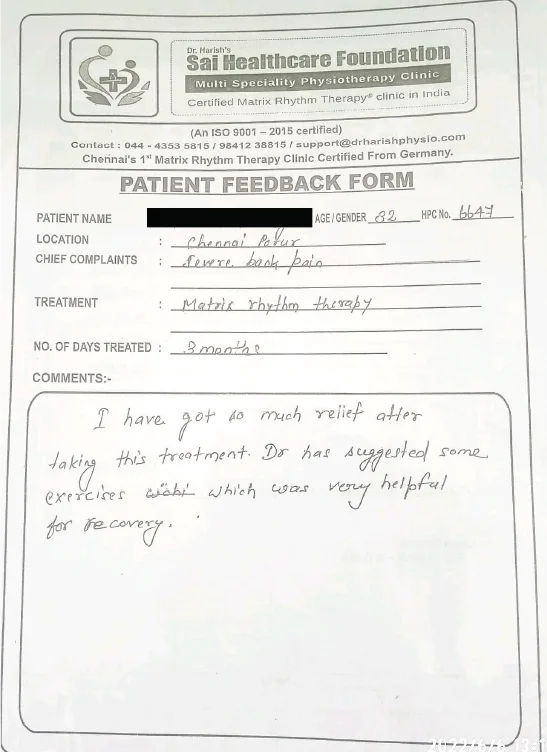 Dr. Harish's
Sai Healthcare Foundation
Multi Speciality Physiotherapy Clinic
Certified Matrix Rhythm Therapy® clinic in India
(An ISO 9001 – 2015 certified)
Contact : 044 - 4353 5815 / 98412 38815 / support@drharishphysio.com
Chennai's 1st Matrix Rhythm Therapy Clinic Certified From Germany.
PATIENT FEEDBACK FORM
PATIENT NAME AGE / GENDER 32 HPC No. 6647
LOCATION : Chennai Porur
CHIEF COMPLAINTS : Severe back pain
TREATMENT : Matrix rhythm therapy
NO. OF DAYS TREATED : 3 months
COMMENTS:-
I have got so much relief after
taking this treatment. Dr has suggested some
exercises which was very helpful
for recovery.